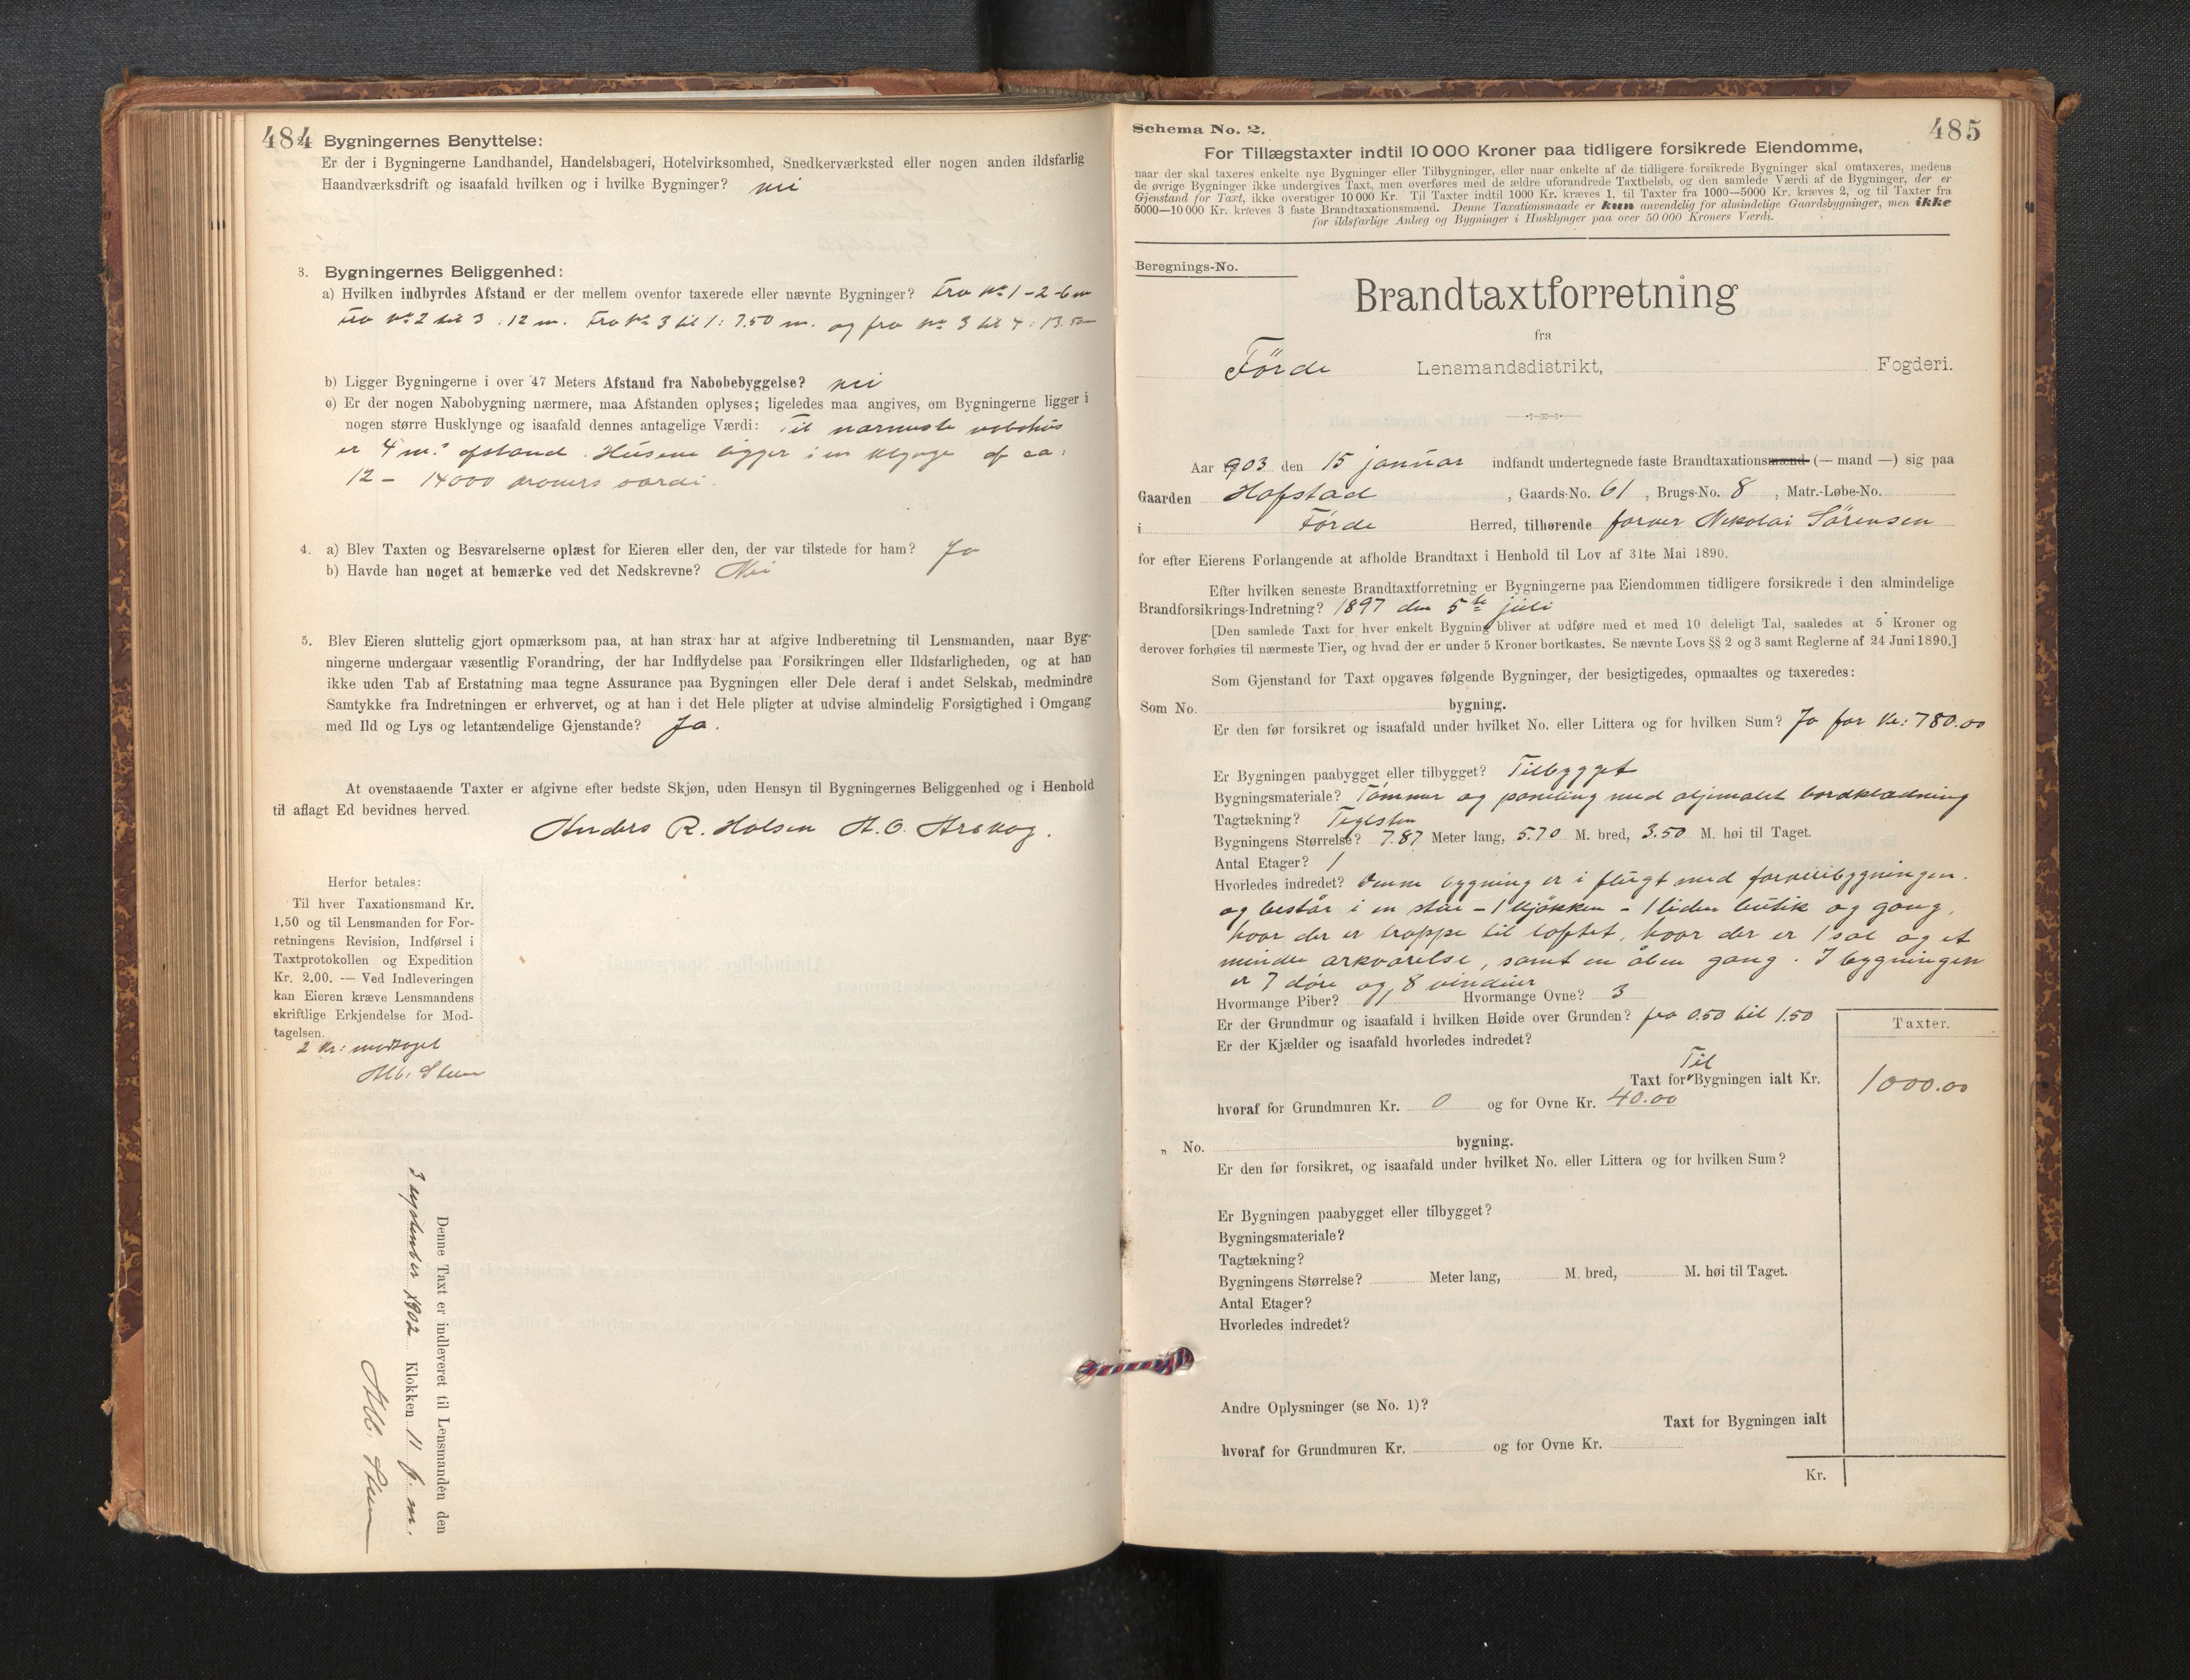 484
Bygningernes Benyttelse:
Er der i Bygningerne Landhandel, Handelsbageri, Hotelvirksomhed, Snedkerværksted eller nogen anden ildsfarlig
Haandværksdrift og isaafald hvilken og i hvilke Bygninger? nei
3. Bygningernes Beliggenhed:
a) Hvilken indbyrdes Afstand er der mellem ovenfor taxerede eller nævnte Bygninger? Fra No 1 - 2 - 6 m
Fra No 2 til 3 : 12 m. Fra No 3 til 1: 7.50 m. og fra No 3 til 4 : 13.50 m
b) Ligger Bygningerne i over 47 Meters Afstand fra Nabobebyggelse? nei
c) Er der nogen Nabobygning nærmere, maa Afstanden oplyses; ligeledes maa angives, om Bygningerne ligger i
nogen større Husklynge og isaafald dennes antagelige Værdi: Til nærmeste nabohus
er 4 m.s afstand. Husene ligger i en klynge af ca.
12 - 14000 kroners værdi.
4. a) Blev Taxten og Besvarelserne oplæst for Eieren eller den, der var tilstede for ham? Ja
b) Havde han noget at bemærke ved det Nedskrevne? Nei
5. Blev Eieren sluttelig gjort opmærksom paa, at han strax har at afgive Indberetning til Lensmanden, naar Byg-
ningerne undergaar væsentlig Forandring, der har Indflydelse paa Forsikringen eller Ildsfarligheden, og at han
ikke uden Tab af Erstatning maa tegne Assurance paa Bygningen eller Dele deraf i andet Selskab, medmindre
Samtykke fra Indretningen er erhvervet, og at han i det Hele pligter at udvise almindelig Forsigtighed i Omgang
med Ild og Lys og letantændelige Gjenstande? Ja.
At ovenstaaende Taxter er afgivne efter bedste Skjøn, uden Hensyn til Bygningernes Beliggenhed og i Henhold
til aflagt Ed bevidnes herved.
Anders R. Halsen A. O.
Herfor betales:
Til hver Taxationsmand Kr.
1.50 og til Lensmanden for For-
retningens Revision, Indførsel i
Taxtprotokollen og Expedition
Kr. 2.00. — Ved Indleveringen
kan Eieren kræve Lensmandens
skriftlige Erkjendelse for Mod-
tagelsen.
2 Kr: modtaget
Alb. Steen
Denne Taxt er indleveret til Lensmanden den
3 september 1902 Klokken 11 f. m.
Alb. Steen
485
Schema No. 2.
For Tillægstaxter indtil 10 000 Kroner paa tidligere forsikrede Eiendomme,
naar der skal taxeres enkelte nye Bygninger eller Tilbygninger, eller naar enkelte af de tidligere forsikrede Bygninger skal omtaxeres, medens
de øvrige Bygninger ikke undergives Taxt, men overføres med de ældre uforandrede Taxtbeløb, og den samlede Værdi af de Bygninger, der er
Gjenstand for Taxt, ikke overstiger 10 000 Kr. Til Taxter indtil 1000 Kr. kræves 1, til Taxter fra 1000—5000 Kr. kræves 2, og til Taxter fra
5000—10 000 Kr. kræves 3 faste Brandtaxationsmænd. Denne Taxationsmaade er kun anvendelig for almindelige Gaardsbygninger, men ikke
for ildsfarlige Anlæg og Bygninger i Husklynger paa over 50 000 Kroners Værdi.
Beregnings-No.
Brandtaxtforretning
fra
Förde Lensmandsdistrikt, Fogderi.
Aar 903 den 15 januar indfandt undertegnede faste Brandtaxationsmænd (— mand —) sig paa
Gaarden Hafstad, Gaards-No. 61, Brugs-No. 8, Matr.-Løbe-No.
i Förde Herred, tilhørende farver Nikolai Sörensen
for efter Eierens Forlangende at afholde Brandtaxt i Henhold til Lov af 31te Mai 1890.
Efter hvilken seneste Brandtaxtforretning er Bygningerne paa Eiendommen tidligere forsikrede i den almindelige
Brandforsikrings-Indretning? 1897 den 5te juli
[Den samlede Taxt for hver enkelt Bygning bliver at udføre med et med 10 deleligt Tal, saaledes at 5 Kroner og
derover forhøies til nærmeste Tier, og hvad der er under 5 Kroner bortkastes. Se nævnte Lovs §§ 2 og 3 samt Reglerne af 24 Juni 1890.]
Som Gjenstand for Taxt opgaves følgende Bygninger, der besigtigedes, opmaaltes og taxeredes:
Som No. bygning.
Er den før forsikret og isaafald under hvilket No. eller Littera og for hvilken Sum? Ja for Kr: 780.00
Er Bygningen paabygget eller tilbygget? Tilbygget
Bygningsmateriale? Tömmer og paneling med oljemalet bordklædning
Tagtækning? Teglsten
Bygningens Størrelse? 7.87 Meter lang, 5.70 M. bred, 3.50 M. høi til Taget.
Antal Etager? 1
Hvorledes indredet? Denne bygning er i flugt med farveribygningen.
og består i en stue - 1 kjökken - 1 liden butik og gang,
hvor der er trappe til loftet, hvor der er 1 sal og et
mindre arkværelse, samt en åben gang. I bygningen
er 7 döre og 8 vinduer
Hvormange Piber? 1 Hvormange Ovne? 3
Er der Grundmur og isaafald i hvilken Høide over Grunden? fra 0.50 til 1.50
Er der Kjælder og isaafald hvorledes indredet?
Taxter.
Til
Taxt for Bygningen ialt Kr. 1000.00
hvoraf for Grundmuren Kr. 0 og for Ovne Kr. 40.00
„ No. bygning.
Er den før forsikret, og isaafald under hvilket No. eller Littera og for hvilken Sum?
Er Bygningen paabygget eller tilbygget?
Bygningsmateriale?
Tagtækning?
Bygningens Størrelse? Meter lang, M. bred, M. høi til Taget.
Antal Etager?
Hvorledes indredet?
Andre Oplysninger (se No. 1)?
Taxt for Bygningen ialt
hvoraf for Grundmuren Kr. og for Ovne Kr.
Kr.